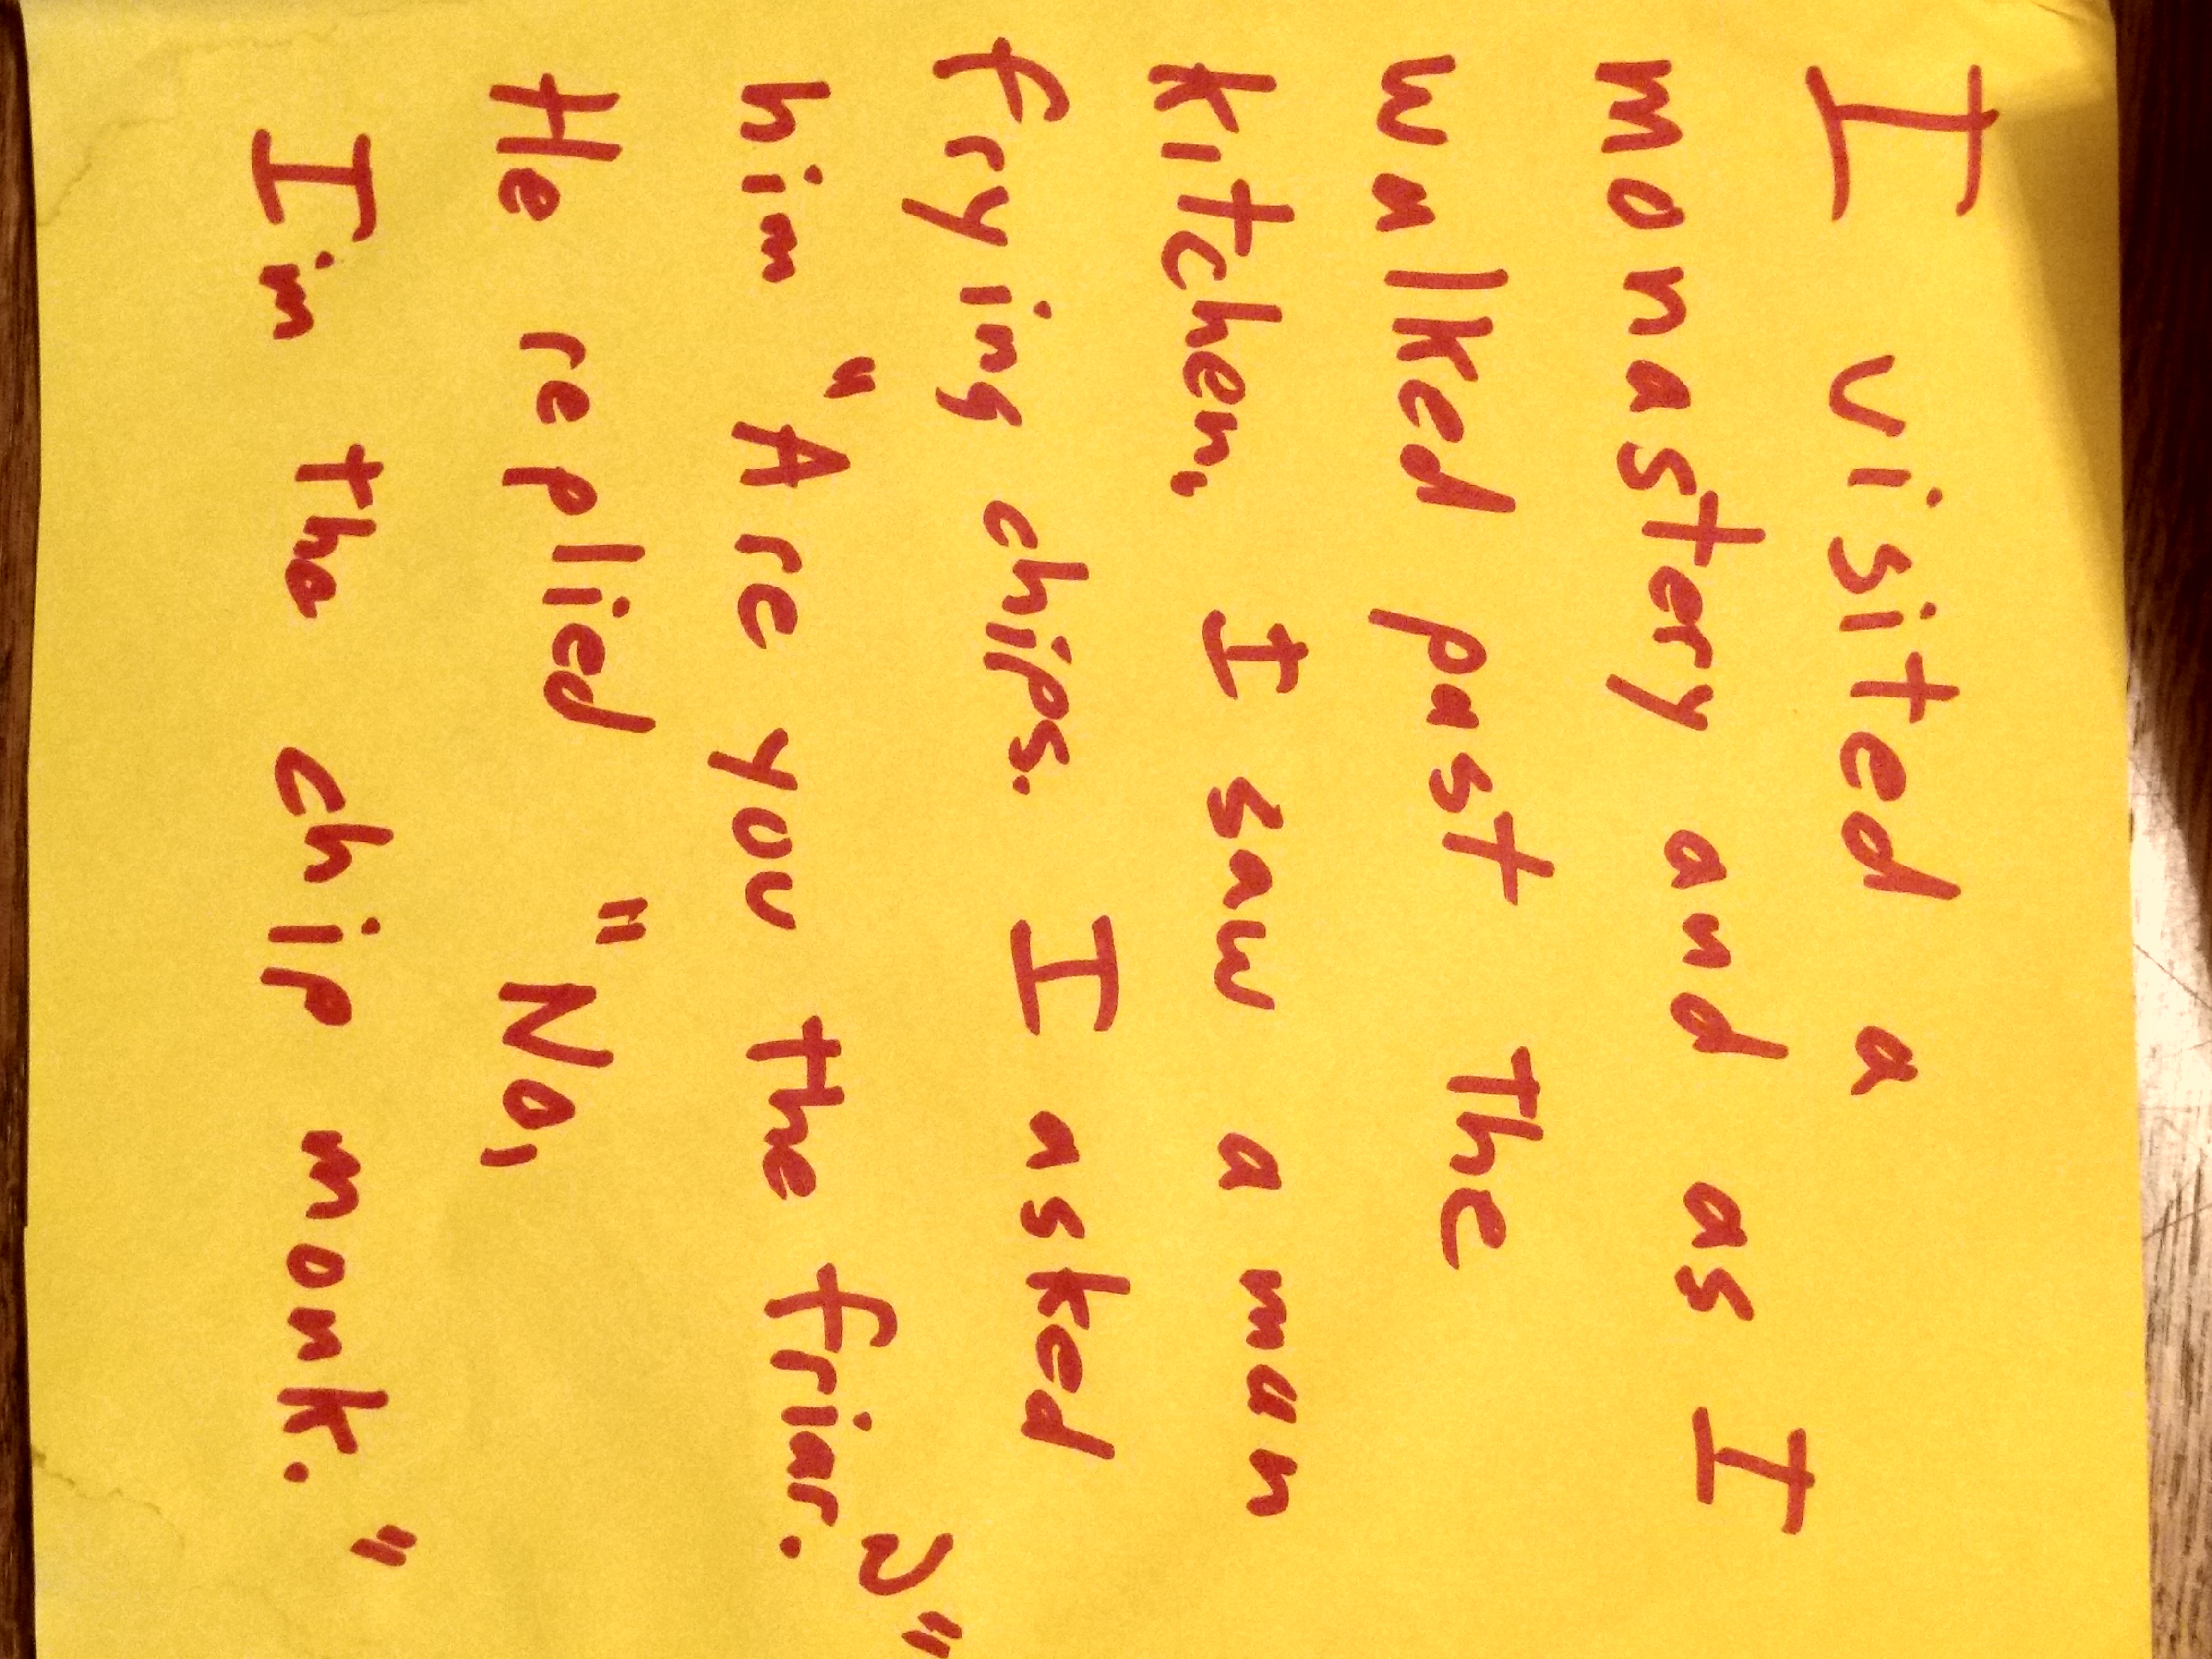 I visited a
monastery and as I
walked past the
kitchen, I saw a man
frying chips. I asked
him "Are you the friar.?"
He replied "No,
I'm the chip monk."